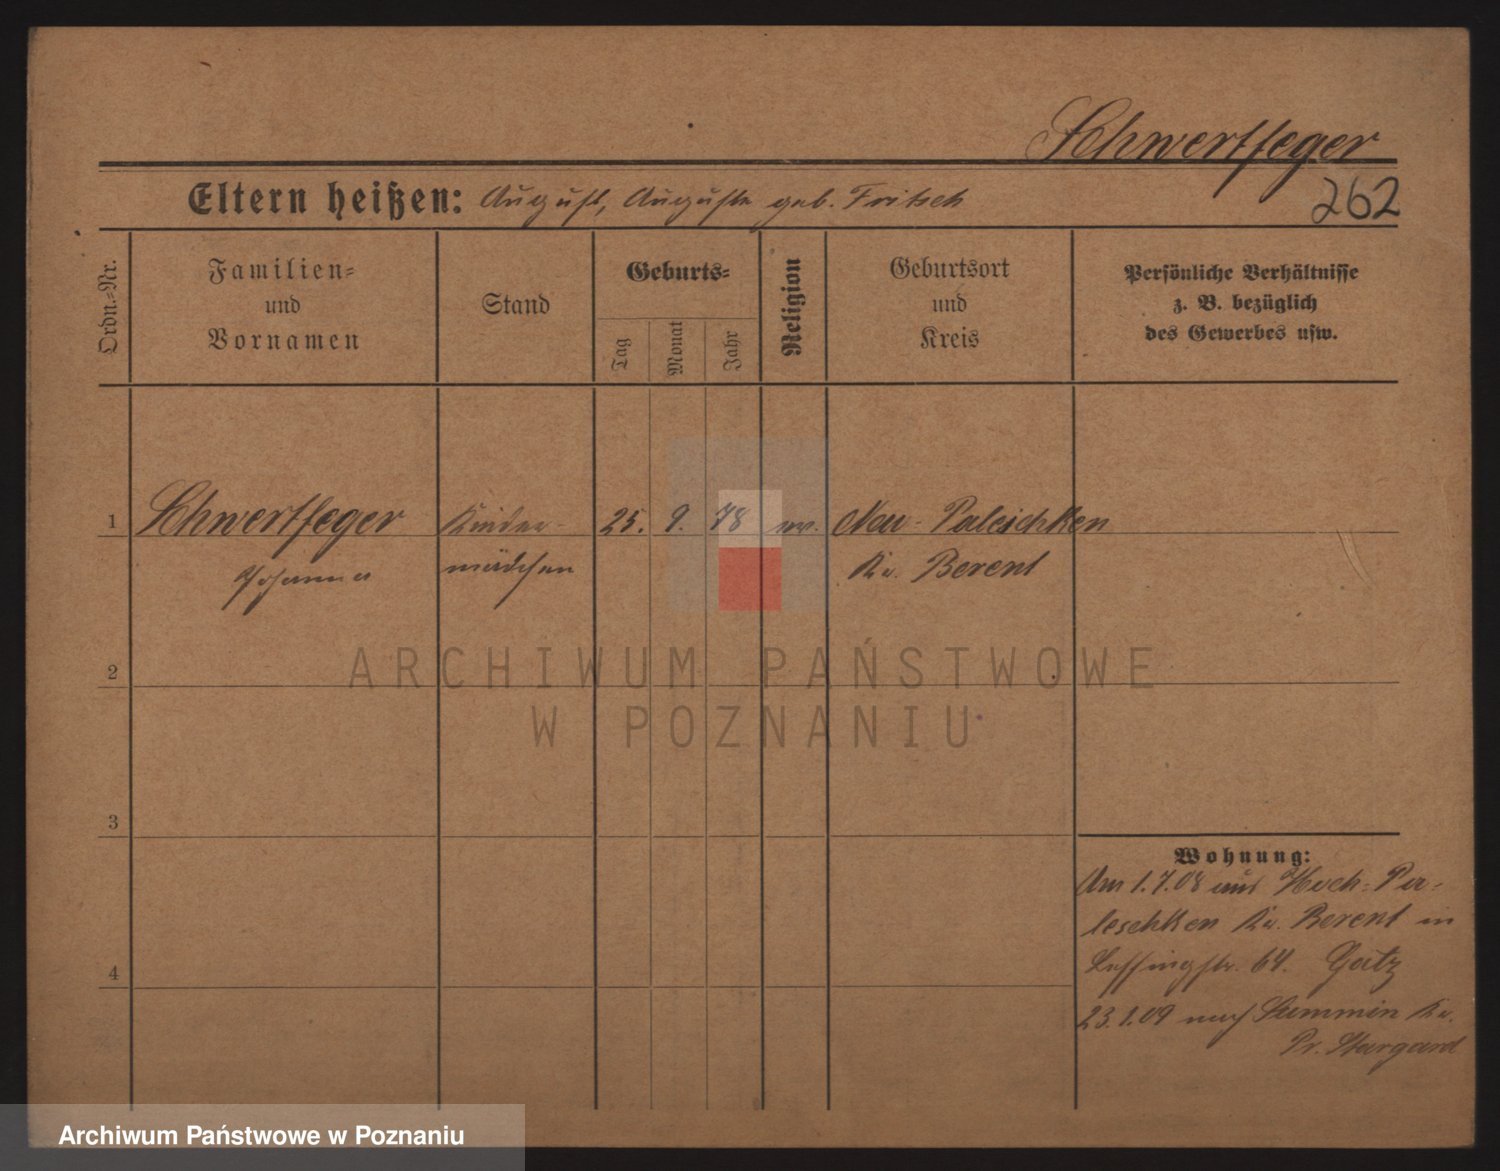 Schwertfeger
Eltern heißen: August, Auguste geb. Fritsch
262
Ordn.-Nr.
Familien-
und
Vornamen
Stand
Geburts-
Tag
Monat
Jahr
Religion
Geburtsort
und
Kreis
Persönliche Verhältnisse
z. B. bezüglich
des Gewerbes usw.
1 Schwertfeger Kinder- 25. 9. 78 ev. Neu-Paleschken
Johanna mädchen Kr. Berent
2
3
4
Wohnung:
Am 1.7.08 aus Hoch-Pa-
leschken Kr. Berent in
Lessingstr. 64.
23.1.09 nach Summin Kr.
Pr. Stargard
ARCHIWUM PAŃSTWOWE
W POZNANIU
Archiwum Państwowe w Poznaniu